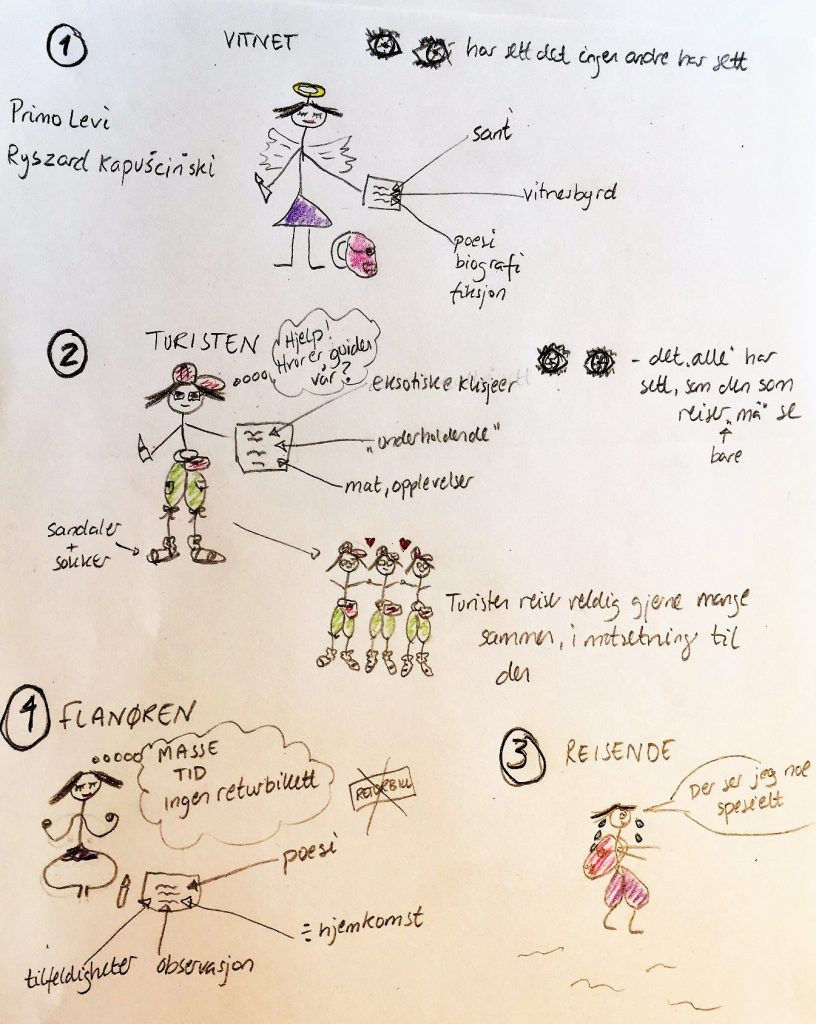 1
VITNET
har sett det ingen andre har sett
Primo Levi
Ryszard Kapuściński
sant
vitnesbyrd
poesi
biografi
fiksjon
2
TURISTEN
Hjelp!
Hvor er guiden
vår?
eksotiske klisjeer
"underholdende"
mat, opplevelser
- det "alle" har
sett, som den som
reiser "må" se
bare
sandaler
+
sokker
Turisten reiser veldig gjerne mange
sammen, i motsetning til
den
4
FLANØREN
MASSE
TID
ingen returbillett
RETURBILL
poesi
÷ hjemkomst
tilfeldigheter
observasjon
3
REISENDE
Der ser jeg noe
spesielt